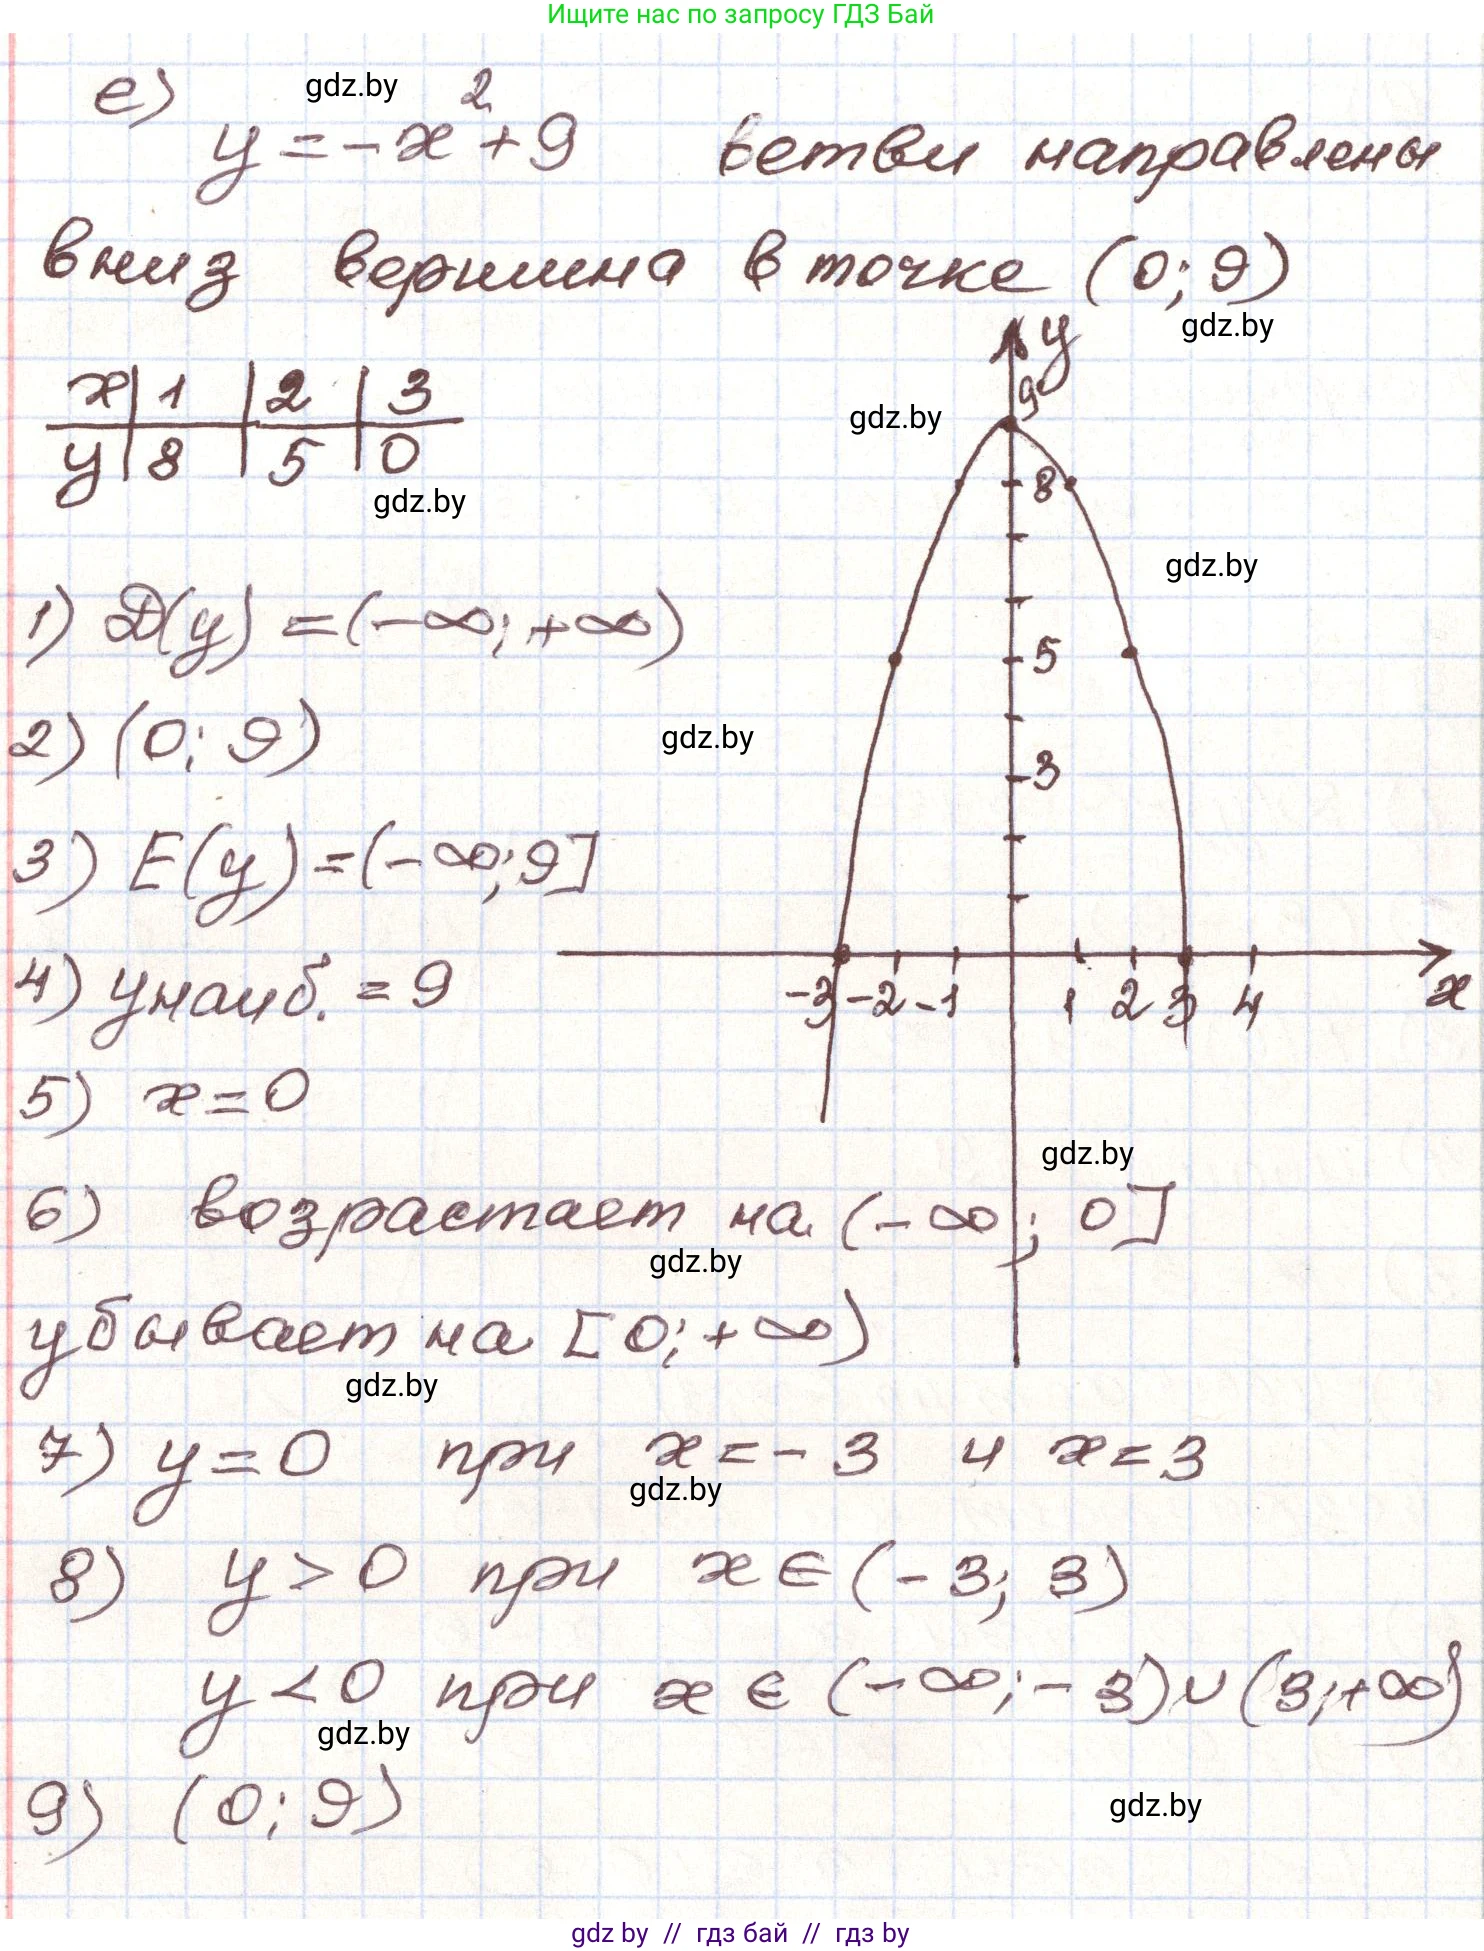 Ищите нас по запросу ГДЗ Бай
е) gdz.by
y = -x² + 9 ветви направлены
вниз вершина в точке (0; 9)
gdz.by
y
9
x | 1 | 2 | 3
y | 8 | 5 | 0
gdz.by
gdz.by
8
gdz.by
1) D(y) = (-∞; +∞)
5
2) (0; 9)
gdz.by
3
3) E(y) = (-∞; 9]
4) yнаиб. = 9
-3 -2 -1 1 2 3 4 x
5) x = 0
gdz.by
6) возрастает на (-∞; 0]
gdz.by
убывает на [0; +∞)
gdz.by
7) y = 0 при x = -3 и x = 3
gdz.by
8) y > 0 при x ∈ (-3; 3)
y < 0 при x ∈ (-∞; -3) ∪ (3; +∞)
gdz.by
9) (0; 9)
gdz.by
gdz by // гдз бай // гдз by